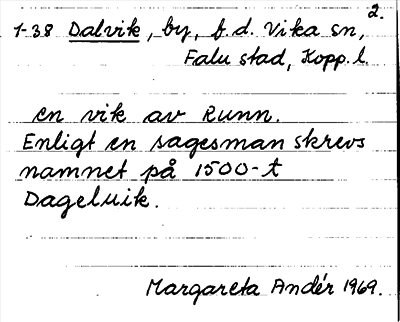 2.
1-38 Dalvik, by, f.d. Vika sn,
Falu stad, Kopp. l.
en vik av Runn.
Enligt en sagesman skrevs
namnet på 1500-t
Dageluik.
Margareta Andér 1969.